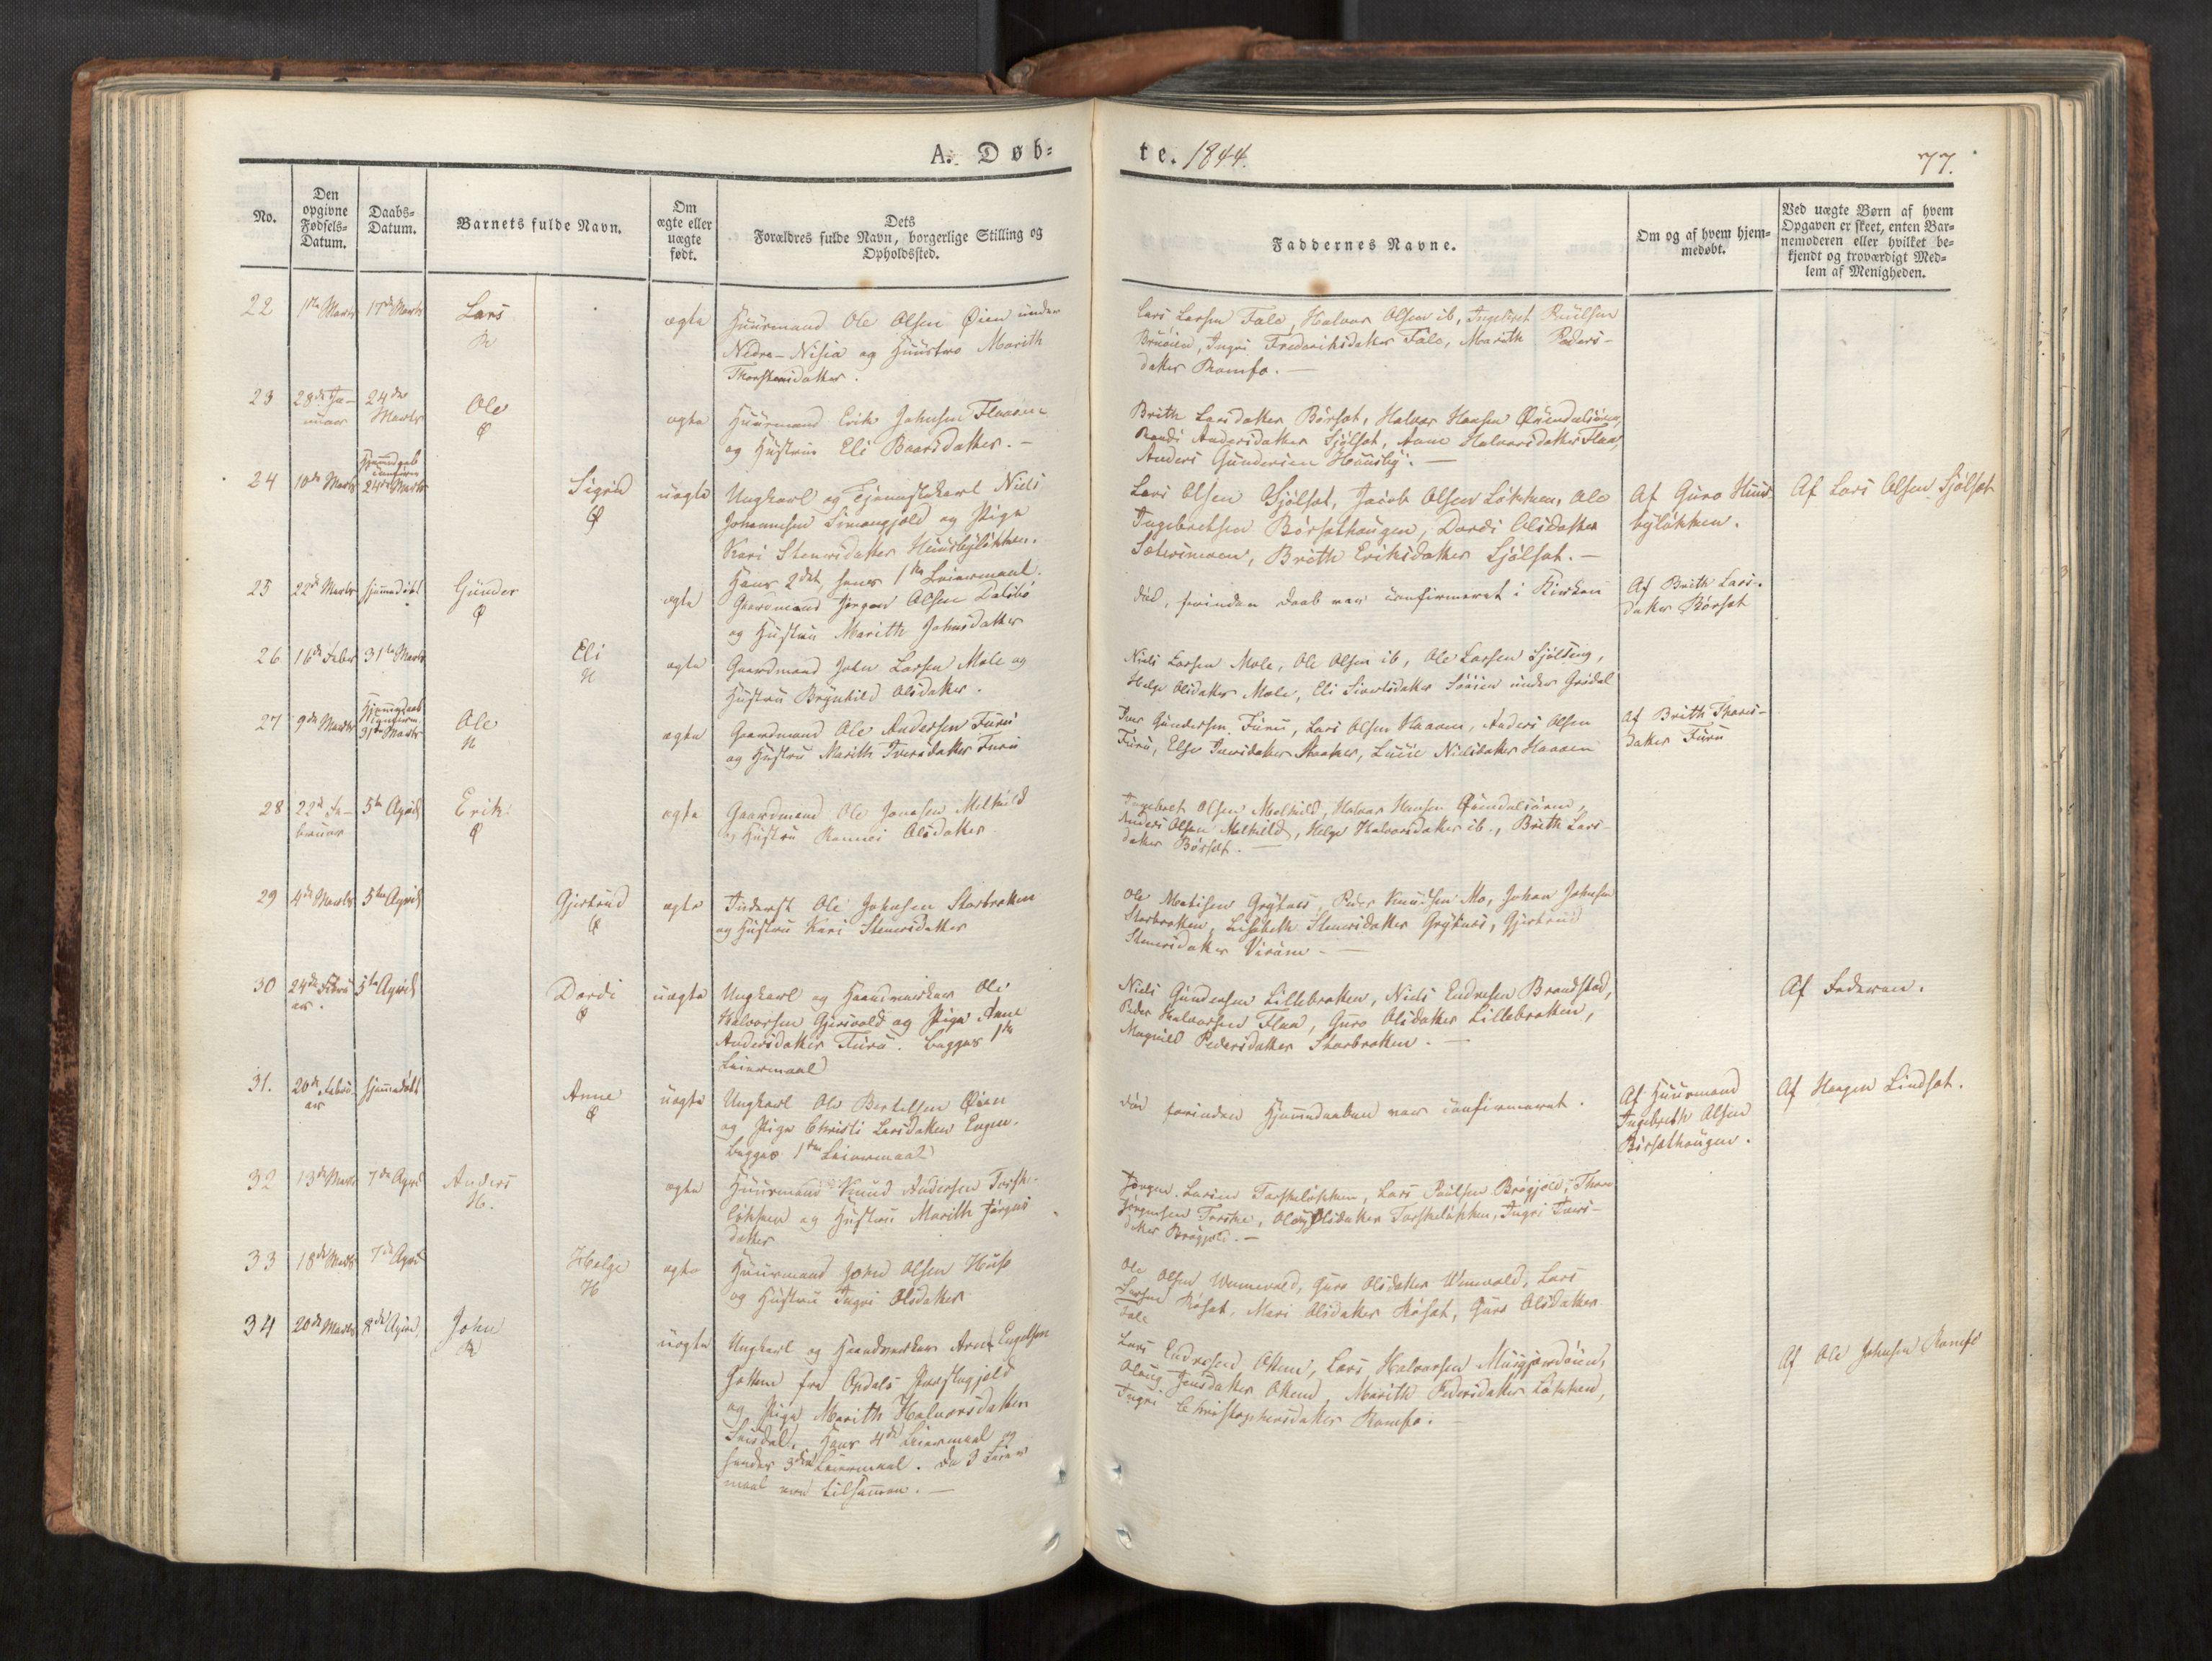 A. Døb=
te. 1844.
77.
No.
Den opgivne Fødsels= Datum.
Daabs= Datum.
Barnets fulde Navn.
Om ægte eller uægte født.
Dets Forældres fulde Navn, borgerlige Stilling og Opholdssted.
Faddernes Navne.
Om og af hvem hjem= medøbt.
Ved uægte Børn af hvem Opgaven er skeet, enten Bar= nemoderen eller hvilket be= kjendt og troværdigt Med= lem af Menigheden.
22 1ste Marts 17de Marts Lars ægte
R
Huusmand Ole Olsen Øien under
Nedre-Nisia og Huustro Marith
Thorstensdatter.
Lars Larsen Fale, Halvor Olsen ib, Ingebret Poulsen
Bruøien, Ingri Frederiksdatter Fale, Marith Peders-
datter Romfo. —
23 28de Ja- 24de Ole ægte
nuar Marts
Ø
Huusmand Erik Johnsen Flaaøien
og Hustrue Eli Baardsdatter. —
Brith Larsdatter Børset, Halvor Hansen Øxendalsøren,
Randi Andersdatter Sjølset, Anne Halvorsdatter Flaa,
Anders Gundersen Huusby. —
24 10de Marts Hjemmedaab confirm 24de Marts Sigrid uægte
Ø
Ungkarl og Tjenestekarl Niels
Johannesen Simengjeld og Pige
Kari Stenersdatter Huusbyløkken.
Hans 2det, hans 1ste Leiermaal.
Lars Olsen Sjølset, Jacob Olsen Løkken, Ole
Ingebretsen Børsethaugen, Dordi Olsdatter
Sætersmoen, Brith Eriksdatter Sjølset. —
Af Guro Huus-
byløkken.
Af Lars Olsen Sjølset
25 22de Marts hjemmedøbt Gunder ægte
Ø
Gaardmand Jørgen Olsen Dalsbø
og Hustru Marith Johnsdatter
død, forinden Daab var confirmeret i Kirken
Af Brith Lars-
datter Børset
26 16de Febr 31te Marts Eli ægte
H
Gaardmand John Larsen Mæle og
Hustru Brynhild Olsdatter.
Niels Larsen Mæle, Ole Olsen ib, Ole Larsen Hjelseng,
Helge Olsdatter Mæle, Eli Sivertsdatter Søøien under Grødal
27 9de Marts Hjemmedaab confirm. 31te Marts Ole ægte
H
Gaardmand Ole Andersen Furu
og Hustru Marith Iversdatter Furu
Iver Gundersen Furu, Lars Olsen Haaven, Anders Olsen
Furu, Else Iversdatter Haaker, Lucie Nielsdatter Haaven
Af Brith Thores-
datter Furu
28 22de Fe- 5te April Erik ægte
bruar
Ø
Gaardmand Ole Jonasen Melkild
og Hustru Rannei Olsdatter
Ingebret Olsen Melkild, Halvor Hansen Øxendalsøren,
Anders Olsen Melkild, Helge Halvorsdatter ib., Brith Lars-
datter Børset. —
29 4de Marts 5te April Gjertrud ægte
Ø
Inderst Ole Johnsen Storbratten
og Hustru Kari Stenersdatter
Ole Matisen Grytnes, Peder Knudsen Mo, Johan Johnsen
Storbratten, Lisabeth Stenersdatter Grytnes, Gjertrud
Stenersdatter Virum. —
30 24de Febru- 5te April Dordi uægte
ar.
Ø
Ungkarl og Haandværker Ole
Halvorsen Gjersvold og Pige Anne
Andersdatter Furu. Begges 1ste
Leiermaal
Niels Gundersen Lillebratten, Niels Endresen Brandstad,
Peder Halvorsen Flaa, Guro Olsdatter Lillebratten,
Magnild Pedersdatter Storbratten. —
Af Faderen.
31. 20de Febru- hjemmedøbt Anne uægte
ar
Ø
Ungkarl Ole Bertelsen Øien
og Pige Christi Larsdatter Engen.
Begges 1ste Leiermaal
død forinden Hjemmedaaben var confirmeret.
Af Huusmand
Ingebreth Olsen
Børsethaugen.
Af Haagen Lindset.
32 13de Marts 7de April Anders ægte
H.
Huusmand Knud Andersen Torske-
løkken og Hustru Marith Jørgens-
datter
Jørgen Larsen Torskeløkken, Lars Poulsen Brøggjeld, Thore
Jørgensen Torske, Olaug Olsdatter Torskeløkken, Ingri Ivers-
datter Brøggjeld. —
33 18de Marts 7de April Helge ægte
H
Huusmand John Olsen Huse
og Hustru Ingri Olsdatter
Ole Olsen Wennevold, Guro Olsdatter Wennevold, Lars
Larsen Røset, Mari Olsdatter Røset, Guro Olsdatter
Fale
34 20de Marts 8de April John uægte
R
Ungkarl og Haandværker Arnt Engelsen
fra Opdals Præstegjeld
og Pige Marith Halvorsdatter
Hans 4de Leiermaal og
hendes 3die Leiermaal. De 3 Leier-
maal med tilsammen. —
Lars Endresen Ottem, Lars Halvorsen Musgjerdøien,
Olaug Jensdatter Ottem, Marith Pedersdatter Løkken,
Ingri Christophersdatter Romfo. —
Af Ole Johnsen Romfo